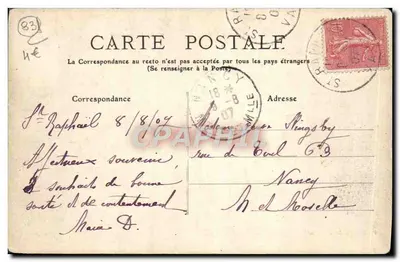 83
4€
CARTE POSTALE
La Correspondance au recto n'est pas acceptée par tous les pays étrangers
(Se renseigner à la Poste)
Correspondance
Adresse
St Raphaël 8/8/07
Affectueux souvenir,
& souhaits de bonne
santé et de contentement
Marie D.
rue de Toul 63
Nancy
M et Moselle
NANCY
18
07